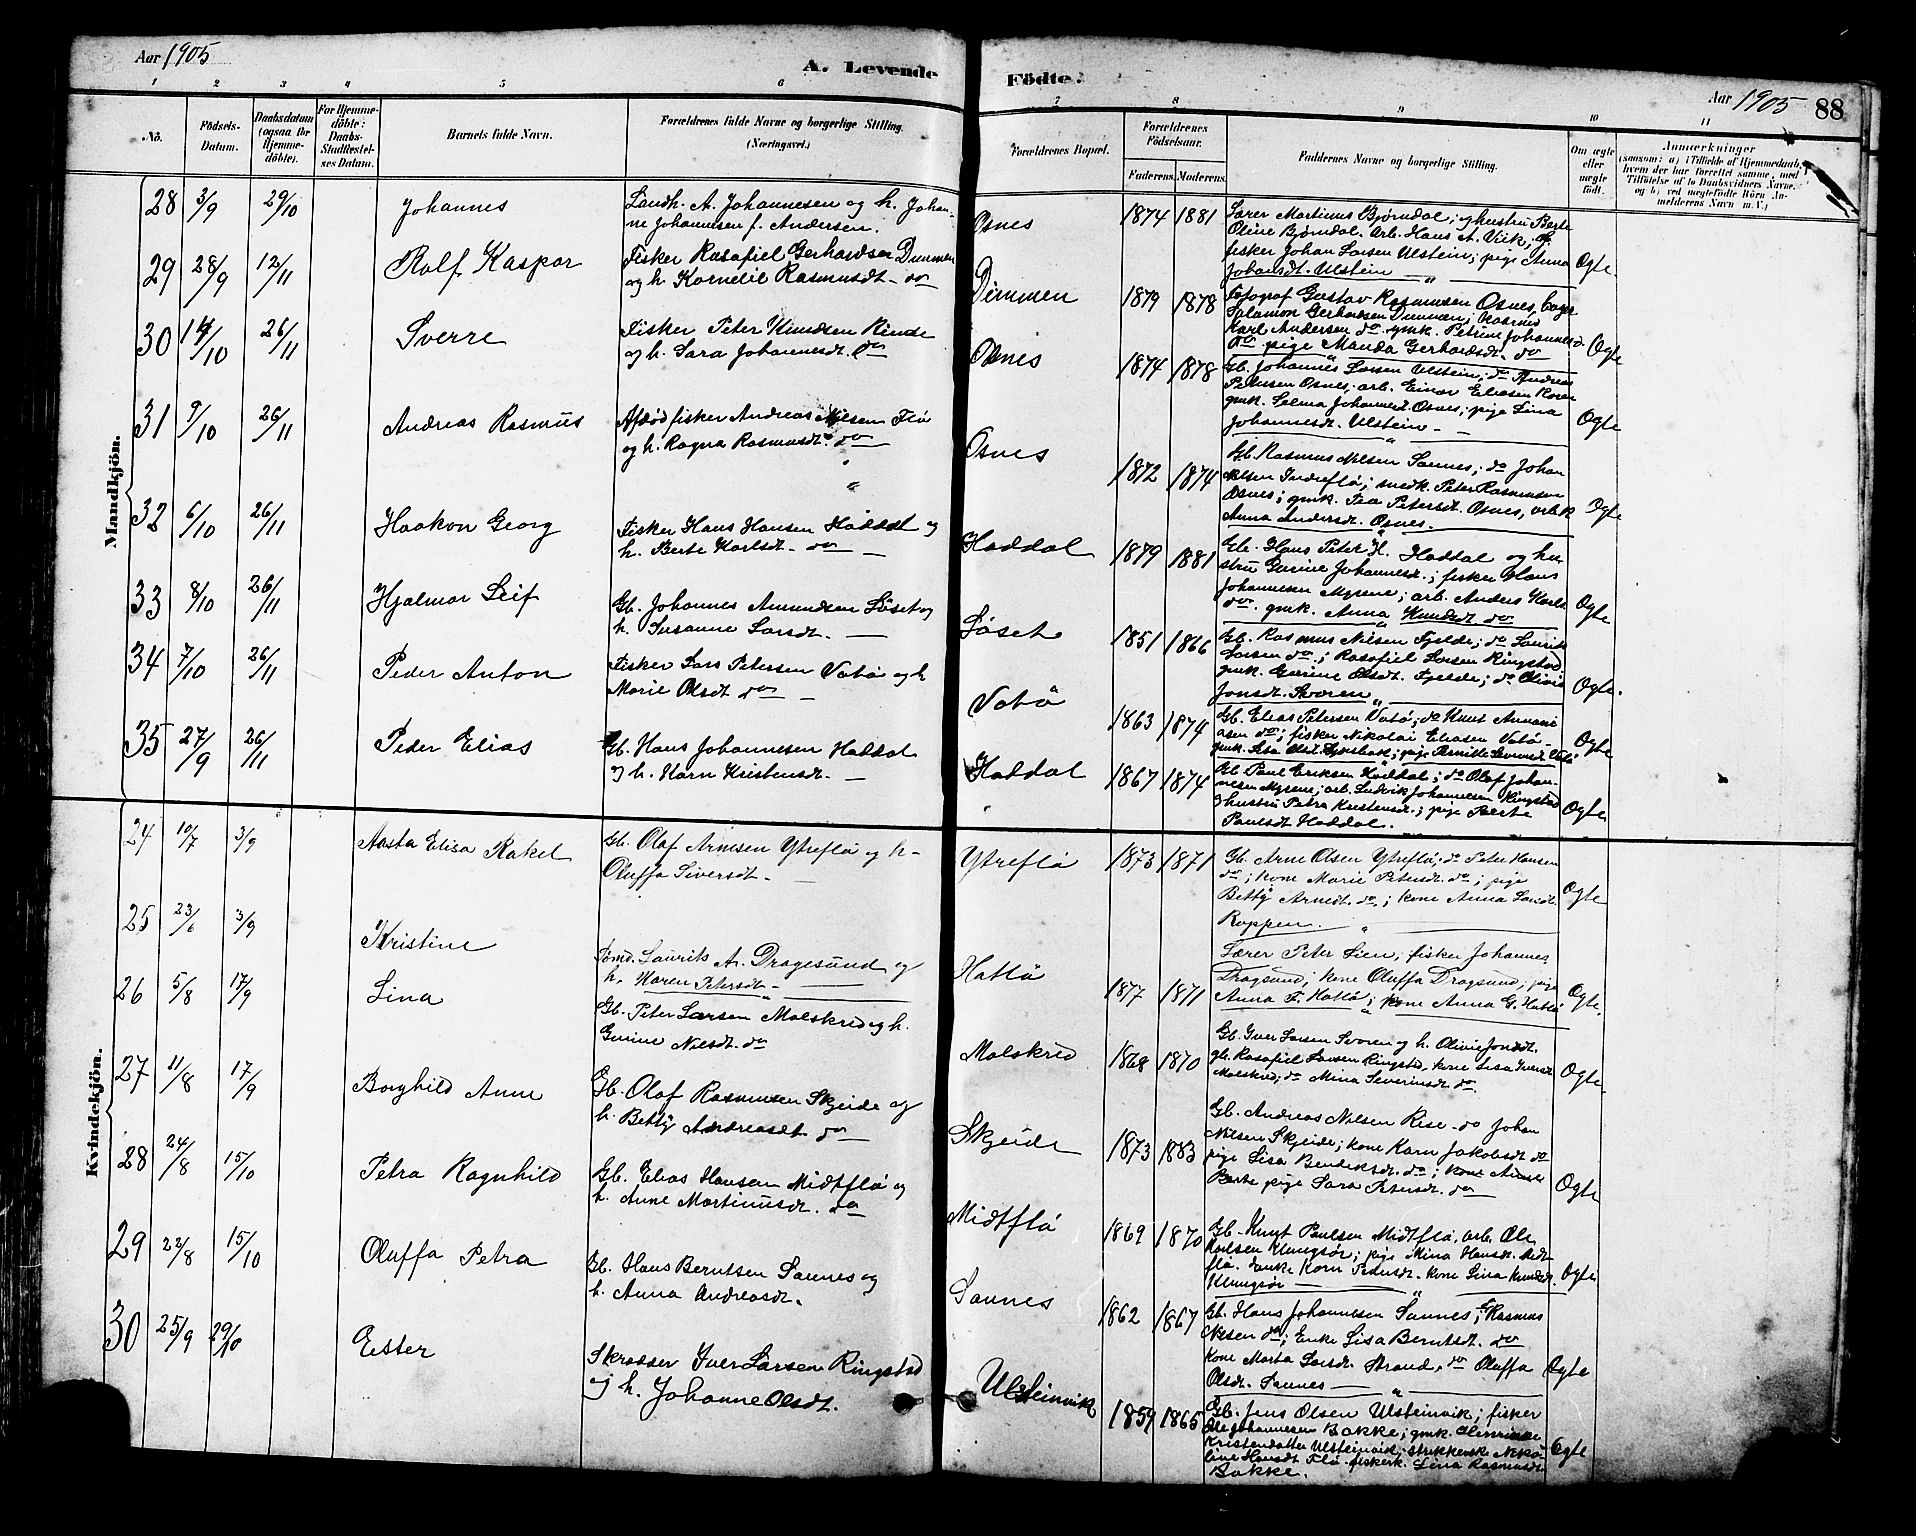 Aar 1905
A. Levende
Födte.
Aar 1905
88
1 2 3 4 5 6 7 8 9 10 11
No.
Födsels-
Datum.
Daabsdatum
(ogsaa for
Hjemme-
döbte).
For Hjemme-
döbte:
Daabs-
Stadfæstel-
ses Datum.
Barnets fulde Navn.
Forældrenes fulde Navne og borgerlige Stilling.
(Næringsvei.)
Forældrenes Bopæl.
Forældrenes
Födselsaar.
Faderens. Moderens.
Faddernes Navne og borgerlige Stilling.
Om ægte
eller
uægte
födt.
Anmærkninger
(saasom: a) i Tilfælde af Hjemmedaab,
hvem der har forrettet samme, med
Tilföielse af to Daabsvidners Navne,
og b) ved uægtefödte Börn An-
melderens Navn m. V.)
Mandkjön.
28 3/9 29/10 Johannes
Landh. A. Johannesen og h. Johan-
ne Johannesen f. Andersen.
Osnes 1874 1881
Lærer Martinus Bjørndal; og hustru Berte
Oline Bjørndal. Arb. Hans A. Viik;
fisker Johan Larsen Ulstein; pige Anna
Johansdt. Ulstein
Ogte.
29 28/9 12/11 Rolf Kaspar
Fisker Rasafiel Gerhardsen Dimmen
og h. Kornelie Rasmusdt. do
Dimmen 1879 1878
Fotograf Gustav Rasmusen Osnes,
Salamon Gerhardsen Dimmen;
Karl Andersen do gmk. Petrine Johannesd.
do. pige Manda Gerhardsdt. do
Ogte
30 14/10 26/11 Sverre
Fisker Peter Knudsen Rinde
og h. Sara Johannesdt. do
Osnes 1874 1878
Gb. Johannes Larsen Ulstein; do Andreas
Petersen Osnes. arb. Einar Eliasen
gmk. Selma Johannesd. Osnes; pige Lina
Johannesdt. Ulstein
Ogte
31 9/10 26/11 Andreas Rasmus
Afdød fisker Andreas Nilsen Flø
og h. Ragna Rasmusdt. do
Osnes 1872 1874
Gb. Rasmus Nilsen Sannes; do Johan
Nilsen Indreflø; snedk. Peter Rasmusen
Osnes; gmk. Tea Petersdt. Osnes, arb.k
Anna Andersdt. Osnes.
Ogte
32 6/10 26/11 Haakon Georg
Fisker Hans Hansen Haddal og
h. Berte Karlsdt. do
Haddal 1879 1881
Gb. Hans Peter H. Haddal og hu-
stru Gurine Johannesdt.; fisker Hans
Johannesen Myrene; arb. Anders Karls
do. gmk. Anna Knudsdt do
Ogte
33 8/10 26/11 Hjalmar Leif
Gb. Johannes Amundsen Løset og
h. Susanne Larsdt.
Løset 1851 1866
Gb. Rasmus Nilsen Fjelde; do Laurits
Larsen do; Rasafiel Larsen Ringstad
gmk. Gurine Olsdt. Fjelde; do Olivia
Jonsdt. Svoren
Ogte.
34 7/10 26/11 Peder Anton
Fisker Lars Petersen Vatø og h
Marie Olsdt do
Vatø 1863 1874
Gb. Elias Petersen Vatø; do Knut Annani
asen do; fisker Nikolai Eliasen Vatø
Ogte
35 27/9 26/11 Peder Elias
Gb. Hans Johannesen Haddal
og h. Karn Kristensdt.
Haddal 1867 1874
Gb. Paul Eriksen Haddal; do Olaf Johan-
nesen Myrene; arb. Ludvik Johannesen Ringstad
og hustru Petra Kristensdt.; pige Berte
Paulsdt Haddal.
Ogte
Kvindekjön.
24 10/7 3/9 Aasta Elisa Rakel
Gb. Olaf Arnesen Ytreflø og h.
Oluffa Siversdt.
Ytreflø 1873 1871
Gb. Arne Olsen Ytreflø; do Peter Hansen
do; kone Marie Petersdt. do; pige
Betty Arnedt. do; kone Anna Larsdt.
Roppen.
Ogte
25 23/6 3/9 Kristine
Tømd. Laurits A. Dragesund og
h. Maren Petersdt.
Hatlø 1877 1871
Lærer Peter Lien; fisker Johannes
Dragsund; kone Oluffa Dragsund; pige
Anna F. Hatlø; kone Anna G. Hatlø
Ogte.
26 5/8 17/9 Lina
Gb. Peter Larsen Molskred og h.
Gurine Nilsdt. do
Molskred 1868 1870
Gb. Iver Larsen Svoren og h. Olivie Jonsdt.
gb. Rasafiel Larsen Ringstad, kone Lisa Iversd
Molskred; do Mina Severinsdt. do.
Ogte
27 11/8 17/9 Borghild Anne
Gb. Olaf Rasmusen Skjeide og
h. Betty Andreasdt. do
Skjeide 1873 1883
Gb. Andreas Nilsen Rise do Johan
Nilsen Skjeide; kone Karn Jakobsdt do
pige Lisa Bendiksdt. do; kone
Berte pige Sara Petersdt. do
Ogte
28 24/8 15/10 Petra Ragnhild
Gb. Elias Hansen Midtflø og
h. Anne Martinusdt. do
Midtflø 1869 1870
Gb. Knut Paulsen Midtflø, arb. Ole
Karlsen Klungsør; pige Mina Hansd. Midt
flø. Enke Karn Pedersdt. kone Lina Knudsdt.
Klungsør
Ogte
29 22/8 15/10 Oluffa Petra
Gb. Hans Berntsen Sannes og
h. Anna Andreasdt.
Sannes 1862 1867
Gb. Hans Johannesen Sannes; Rasmus
Nilsen do; Enke Lisa Berntsdt. do
Kone Marta Larsdt. Strand, do Oluffa
Olsdt. Sannes
Ogte
30 25/9 29/10 Ester
Skrædder Iver Larsen Ringstad
og h. Johanne Olsdt.
Ulsteinvik 1859 1865
Gb. Jens Olsen Ulsteinvik; fisker
Ole Johannesen Bakke; gmk. Henrikke
Kristensdatter Ulsteinvik; strikkerske Niko-
line Hansdt Flø. fiskerk. Lina Rasmusdt.
Bakke.
Ogte